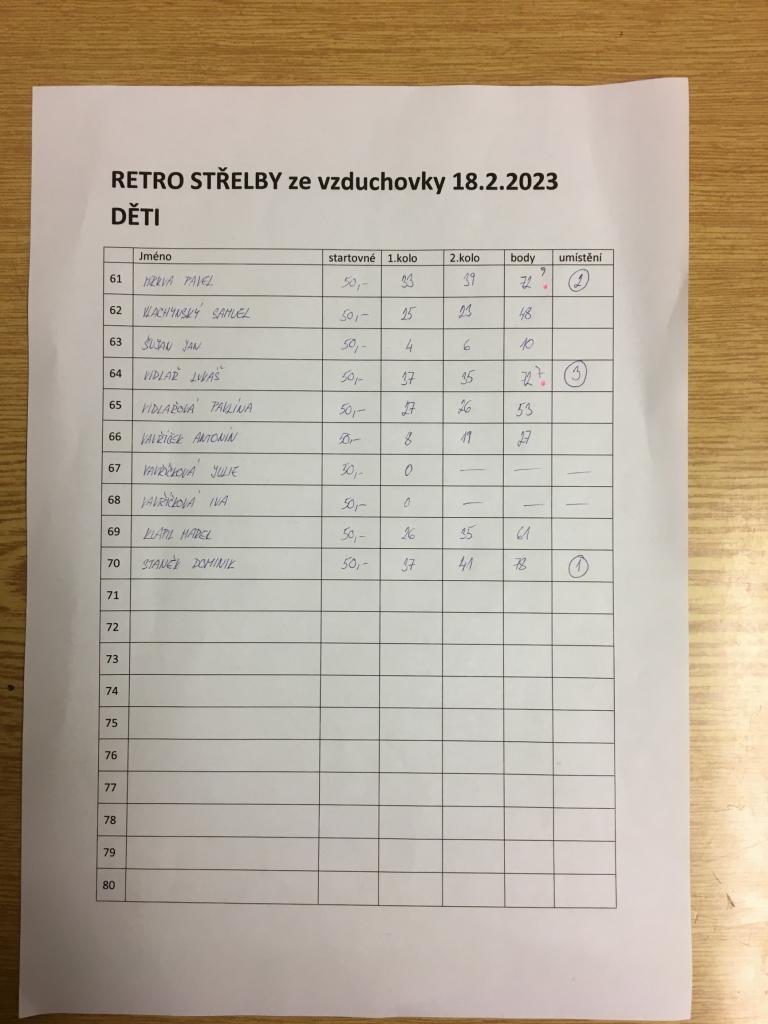 RETRO STŘELBY ze vzduchovky 18.2.2023
DĚTI
Jméno startovné 1.kolo 2.kolo body umístění
61 MRKVA PAVEL 50,- 33 39 72 9 2
62 VLACHYNSKÝ SAMUEL 50,- 25 23 48
63 ŠUJAN JAN 50,- 4 6 10
64 VIDLAŘ LUKÁŠ 50,- 37 35 72 7 3
65 VIDLAŘOVÁ PAVLÍNA 50,- 27 26 53
66 VAVŘÍČEK ANTONÍN 50,- 8 19 27
67 VAVŘÍČKOVÁ JULIE 50,- 0 — — —
68 VAVŘÍČKOVÁ IVA 50,- 0 — — —
69 KLÁTIL 50,- 26 35 61
70 STANĚK DOMINIK 50,- 37 41 78 1
71
72
73
74
75
76
77
78
79
80